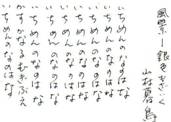 風景ー銀色もざいく
山村暮鳥
いちめんのなのはな
いちめんのなのはな
いちめんのなのはな
いちめんのなのはな
いちめんのなのはな
いちめんのなのはな
いちめんのなのはな
かすかなるむぎぶえ
いちめんのなのはな